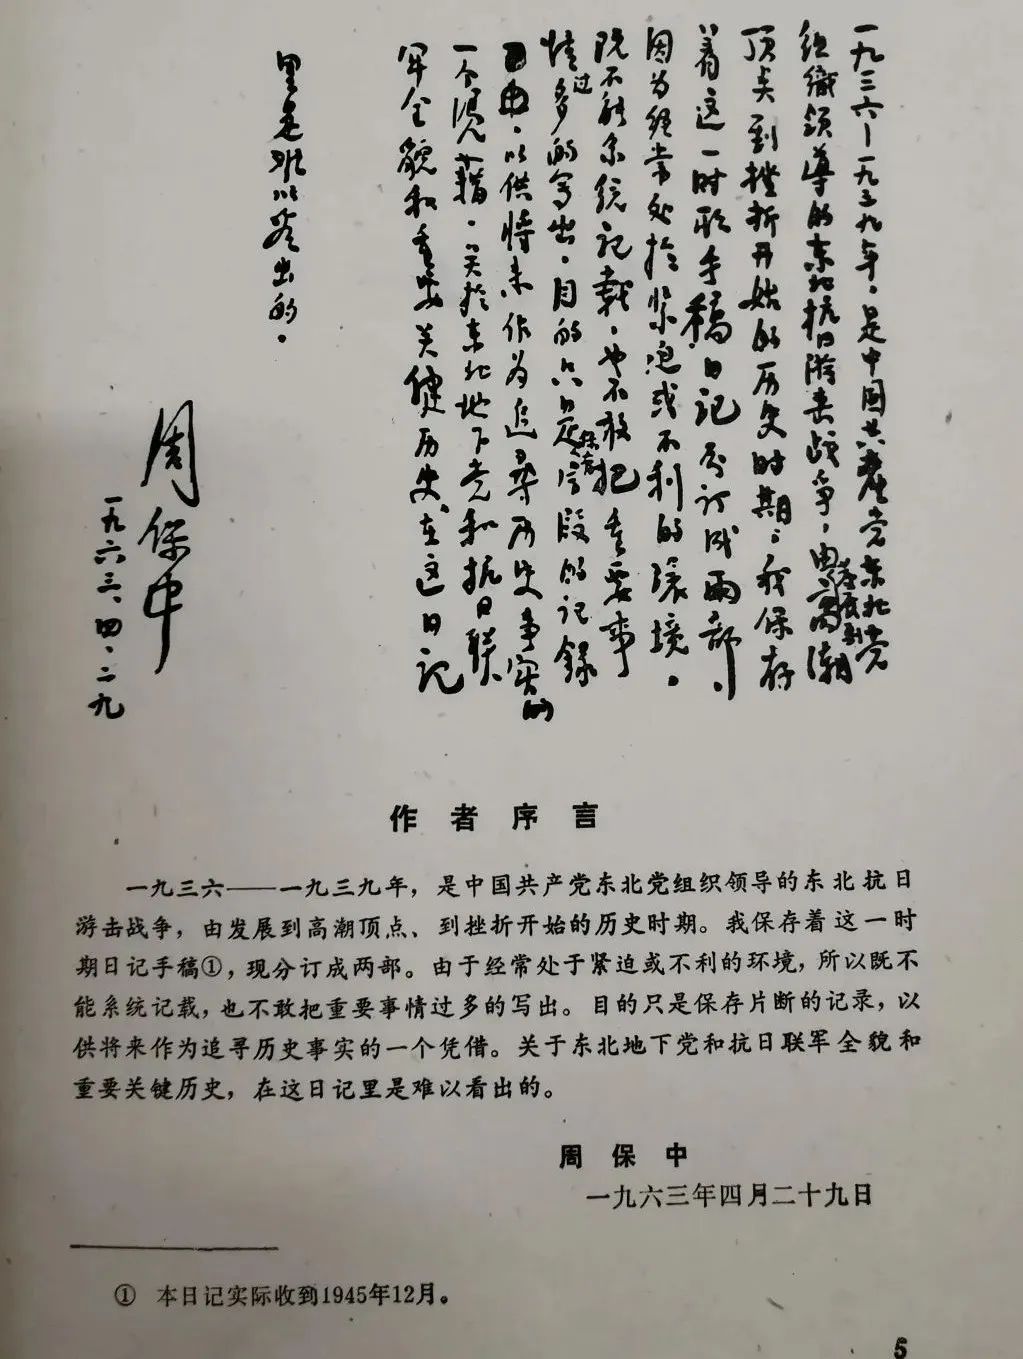 一九三六—一九三九年，是中国共产党东北党
组織领导的东北抗日游击战争，由发展到高潮
顶点到挫折开始的历史时期；我保存
着这一时期手稿日记分订成两部，
因为经常处于紧迫或不利的环境，
既不能系统记载，也不敢把重要事
情过多的写出，目的只是保存片段的记录
以供将来作为追寻历史事实的
一个凭藉，关于东北地下党和抗日联
军全貌和重要关键历史在这日记
里是难以看出的。
周保中
一九六三、四、二九
作者序言
一九三六——一九三九年，是中国共产党东北党组织领导的东北抗日
游击战争，由发展到高潮顶点、到挫折开始的历史时期。我保存着这一时
期日记手稿①，现分订成两部。由于经常处于紧迫或不利的环境，所以既不
能系统记载，也不敢把重要事情过多的写出。目的只是保存片断的记录，以
供将来作为追寻历史事实的一个凭借。关于东北地下党和抗日联军全貌和
重要关键历史，在这日记里是难以看出的。
周保中
一九六三年四月二十九日
① 本日记实际收到1945年12月。
5